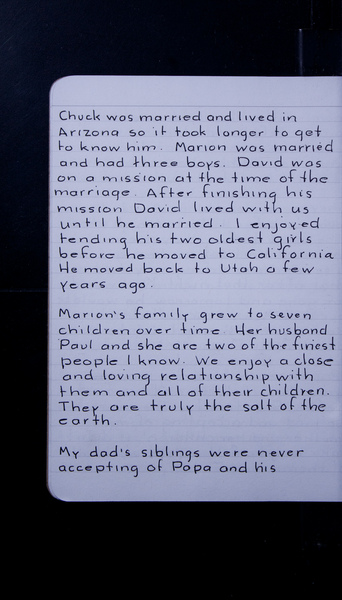 Chuck was married and lived in
Arizona so it took longer to get
to know him. Marion was married
and had three boys. David was
on a mission at the time of the
marriage. After finishing his
mission David lived with us
until he married. I enjoyed
tending his two oldest girls
before he moved to California
He moved back to Utah a few
years ago.
Marion's family grew to seven
children over time. Her husband
Paul and she are two of the finest
people I know. We enjoy a close
and loving relationship with
them and all of their children.
They are truly the salt of the
earth.
My dad's siblings were never
accepting of Papa and his